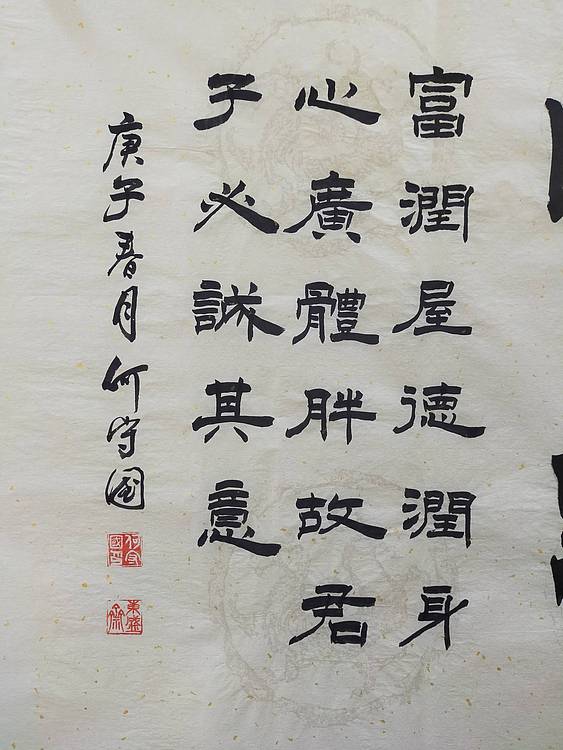 富潤屋德潤身
心廣體胖故君
子必誠其意
庚子春月何守國
何守國印